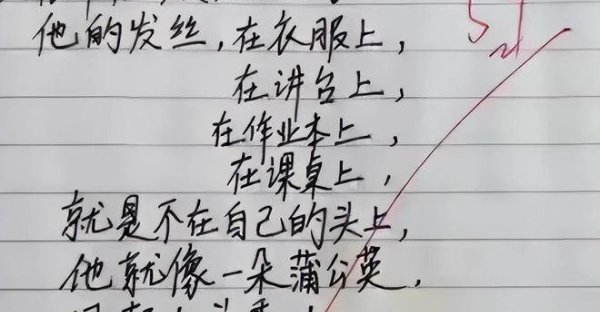 他的发丝,在衣服上,
在讲台上,
在作业本上,
在课桌上,
就是不在自己的头上,
他就像一朵蒲公英,